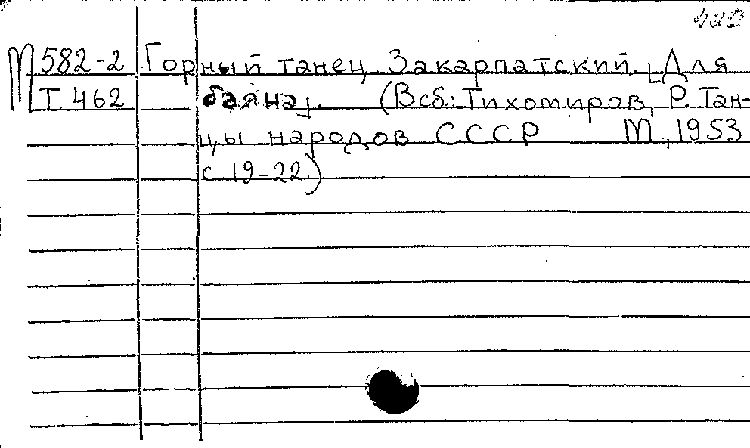 М 582-2 Горный танец. Закарпатский. [Для
Т 462 баяна]. (В сб.: Тихомиров, Р. Тан-
цы народов СССР М., 1953
с. 19-22.)